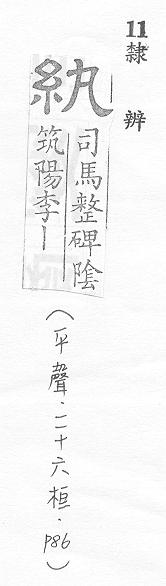 11隸辨
紈
司馬整碑陰
筑陽李丨
(平聲.二十六桓.P86)